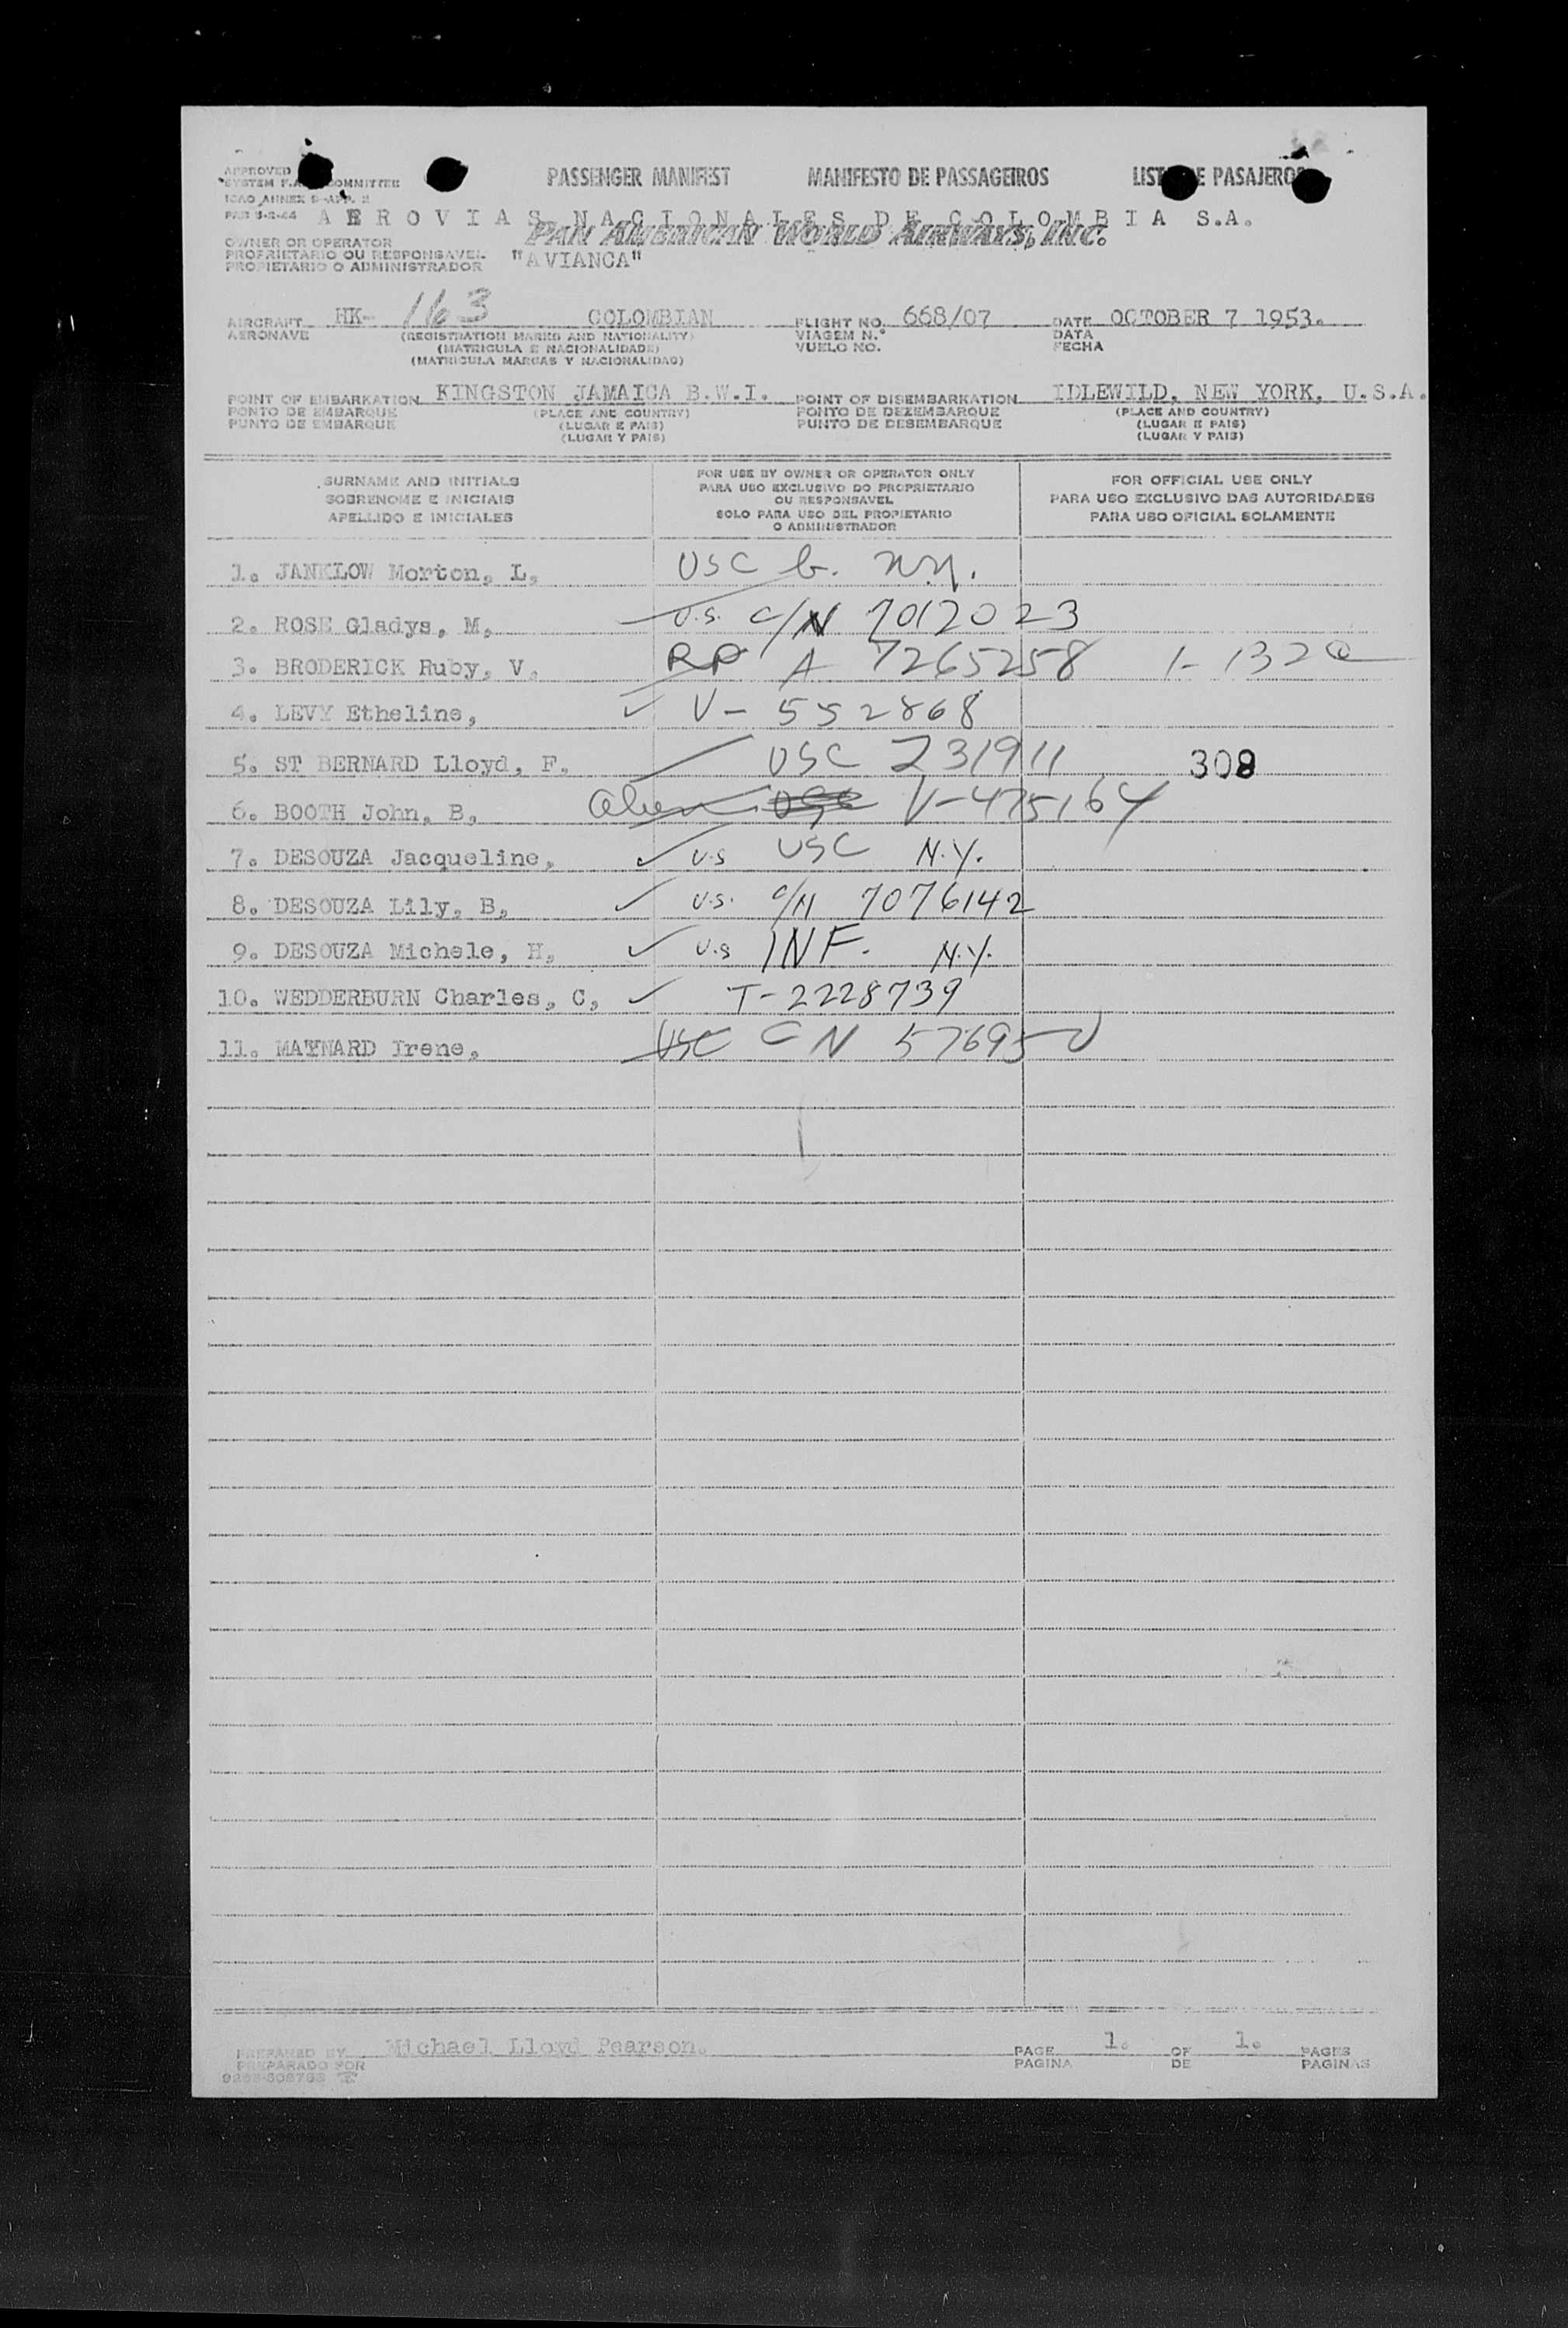 APPROVED
SYSTEM F.A. COMMITTEE
ICAO ANNEX 9-APP. 2
PASSENGER MANIFEST MANIFESTO DE PASSAGEIROS LISTA DE PASAJEROS
AEROVIAS NACIONALES DE COLOMBIA S.A.
PAN AMERICAN WORLD AIRWAYS, INC.
OWNER OR OPERATOR
PROPRIETARIO OU RESPONSAVEL
PROPIETARIO O ADMINISTRADOR "AVIANCA"
AIRCRAFT HK- 163 COLOMBIAN FLIGHT NO. 668/07 DATE OCTOBER 7 1953.
AERONAVE (REGISTRATION MARKS AND NATIONALITY) VIAGEM N.° DATA
(MATRICULA E NACIONALIDADE) VUELO NO. FECHA
(MATRICULA MARCAS Y NACIONALIDAD)
POINT OF EMBARKATION KINGSTON JAMAICA B.W.I. POINT OF DISEMBARKATION IDLEWILD, NEW YORK, U.S.A.
PONTO DE EMBARQUE (PLACE AND COUNTRY) PONTO DE DEZEMBARQUE (PLACE AND COUNTRY)
PUNTO DE EMBARQUE (LUGAR E PAIS) PUNTO DE DESEMBARQUE (LUGAR E PAIS)
(LUGAR Y PAIS) (LUGAR Y PAIS)
SURNAME AND INITIALS
SOBRENOME E INICIAIS
APELLIDO E INICIALES
FOR USE BY OWNER OR OPERATOR ONLY
PARA USO EXCLUSIVO DO PROPRIETARIO
OU RESPONSAVEL
SOLO PARA USO DEL PROPIETARIO
O ADMINISTRADOR
FOR OFFICIAL USE ONLY
PARA USO EXCLUSIVO DAS AUTORIDADES
PARA USO OFICIAL SOLAMENTE
1. JANKLOW Morton, L, USC b. N.Y.
2. ROSE Gladys, M, U.S. C/N 7012023
3. BRODERICK Ruby, V, RP A 7265258 1-132a
4. LEVY Etheline, V-552868
5. ST BERNARD Lloyd, F, USC 231911 308
6. BOOTH John, B, alien USC V-475164
7. DESOUZA Jacqueline, U.S USC N.Y.
8. DESOUZA Lily, B, U.S. C/N 7076142
9. DESOUZA Michele, H, U.S INF. N.Y.
10. WEDDERBURN Charles, C, T-2228739
11. MAYNARD Irene, USC CN 576950
PREPARED BY Michael Lloyd Pearson. PAGE 1. OF 1. PAGES
PREPARADO POR PAGINA DE PAGINAS